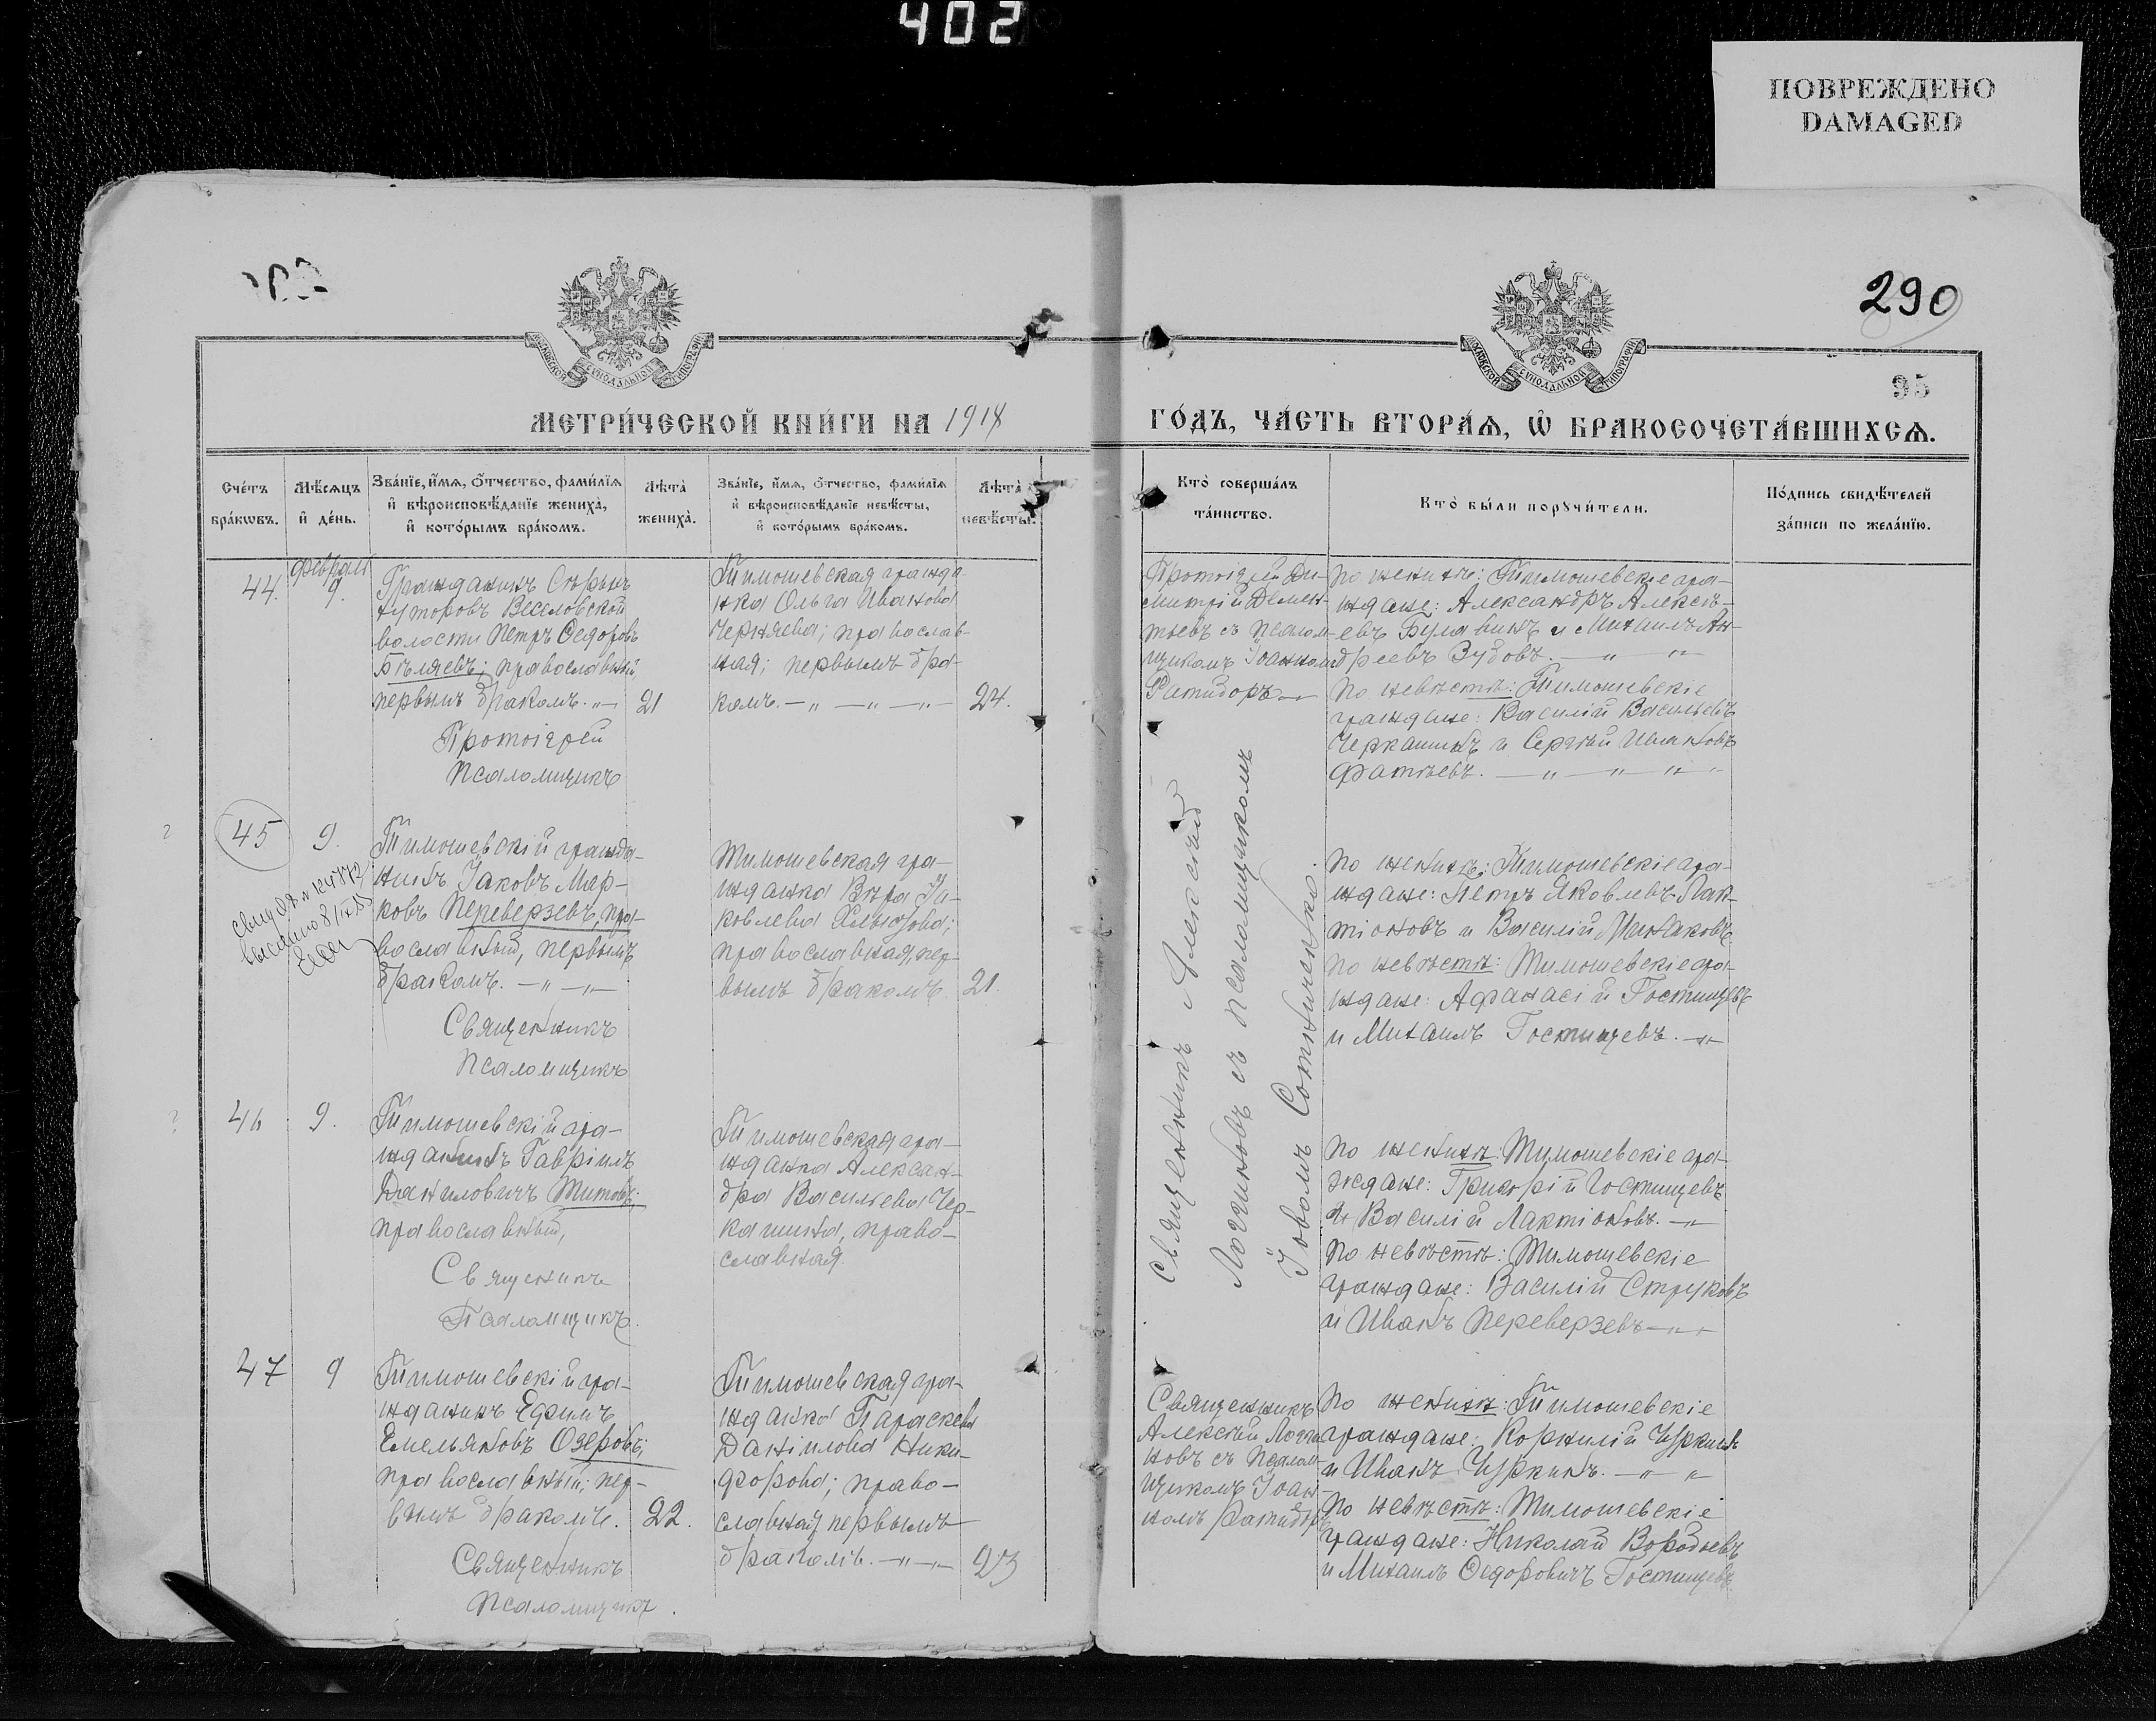 402
ПОВРЕЖДЕНО
DAMAGED
290
95
МОСКОВСКОЙ СѴНОДАЛЬНОЙ ТИПОГРАФІИ
МОСКОВСКОЙ СѴНОДАЛЬНОЙ ТИПОГРАФІИ
МЕТРИ́ЧЕСКОЙ КНИ́ГИ НА 1918
ГО́ДЪ, ЧА́СТЬ ВТОРА́Ѧ, Ѡ҆ БРАКОСОЧЕТА́ВШИХСѦ.
Сче́тъ
бра́кѡвъ.
Мѣ́сѧцъ
и҆ де́нь.
Зва́нїе, и҆́мѧ, ѻ҆́тчество, фами́лїѧ
и҆ вѣроисповѣ́данїе жениха̀,
и҆ кото́рымъ бра́комъ.
Лѣта̀
жениха̀.
Зва́нїе, и҆́мѧ, ѻ҆́тчество, фами́лїѧ
и҆ вѣроисповѣ́данїе невѣ́сты,
и҆ кото́рымъ бра́комъ.
Лѣта̀
невѣ́сты.
Кто̀ соверша́лъ
та́инство.
Кто̀ бы́ли порꙋчи́тели.
По́дпись свидѣ́телей
за́писи по жела́нїю.
44.
февраля
9.
Гражданинъ Сѣрыхъ
хуторовъ Веселовской
волости Петръ Ѳедоровъ
Бѣляевъ; православный
первымъ бракомъ. -"-
21
Протоіерей
Псаломщикъ
Тимошевская гражда-
нка Ольга Иванова
Черняева; православ-
ная; первымъ бра-
комъ. -"- -"- -"-
24.
Протоіерей Ди-
митрій Демен-
тьевъ съ псалом-
щикомъ Іоанномъ
Ратидоръ
По женихѣ: Тимошевскіе гра-
ждане: Александръ Алексѣ-
евъ Булавинъ и Михаилъ Ан-
дреевъ Зубовъ. -"- -"-
По невѣстѣ: Тимошевскіе
граждане: Василій Васильевъ
Черкашинъ и Сергѣй Ивановъ
Фатѣевъ. -"- -"- -"-
45
9.
Тимошевскій гражда-
нинъ Іаковъ Мар-
ковъ Переверзевъ, пра-
вославный, первымъ
бракомъ. -"- -"-
Священникъ
Псаломщикъ
Тимошевская гра-
жданка Вѣра Іа-
ковлева Хлыстова;
православная, пер-
вымъ бракомъ
21.
Священникъ Алексѣй
Логиновъ съ псаломщикомъ
Іовомъ Сотниченко.
По женихѣ: Тимошевскіе гра-
ждане: Петръ Яковлевъ Лак-
тіоновъ и Василій
По невѣстѣ: Тимошевскіе гра-
ждане: Афанасій Гостищевъ
и Михаилъ Гостищевъ. -"-
46
9.
Тимошевскій гра-
жданинъ Гавріилъ
Даниловичъ Титовъ;
православный,
Священникъ
Псаломщикъ.
Тимошевская гра-
жданка Алексан-
дра Васильева Чер-
кашина, право-
славная.
По женихѣ: Тимошевскіе гра-
ждане: Григорій Гостищевъ
и Василій Лактіоновъ. -"-
По невѣстѣ: Тимошевскіе
граждане: Василій Струковъ
и Иванъ Переверзевъ -"-
47
9
Тимошевскій гра-
жданинъ Ефимъ
Емельяновъ Озеровъ;
православный; пер-
вымъ бракомъ.
22.
Священникъ
Псаломщикъ.
Тимошевская гра-
жданка Параскева
Даніилова Ники-
форова; право-
славная первымъ
бракомъ. -"-
23
Священникъ
Алексѣй Логи-
новъ съ псалом-
щикомъ Іоан-
номъ Ратидоръ
По женихѣ: Тимошевскіе
граждане: Корнилій Чуркинъ
и Иванъ Чуркинъ. -"- "
По невѣстѣ: Тимошевскіе
граждане: Николай Воробьевъ
и Михаилъ Ѳедоровичъ Гостищевъ